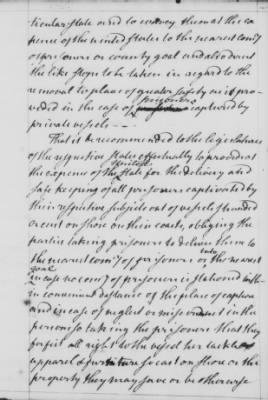 ticular state or ed to convey them at the ex
pence of the united States to the nearest com.y
of prisoners or county goal and also direct
the like steps to be taken in regard to the
removal to places of greater safety as is pro
vided in the case of prisoners captured by
private vessels --
That it be recommended to the legislatures
of the respective states effectually to provide at
the expence of the united State for the delivery and
safe keeping of all prisoners captivated by
their respective subjects out of vessels stranded
or cast on shore on their coasts, obliging the
parties taking prisoners to deliver them to
the nearest com.y of prisoners or into the nearest
goal in case no com.y of prisoners is stationed with-
in convenient distance of the place of capture
and in case of neglect or misconduct in the
persons so taking the prisoners that they
forfeit all right to the vessel her tackle
apparel & furniture so cast on shore or the
property they may save or be otherwise